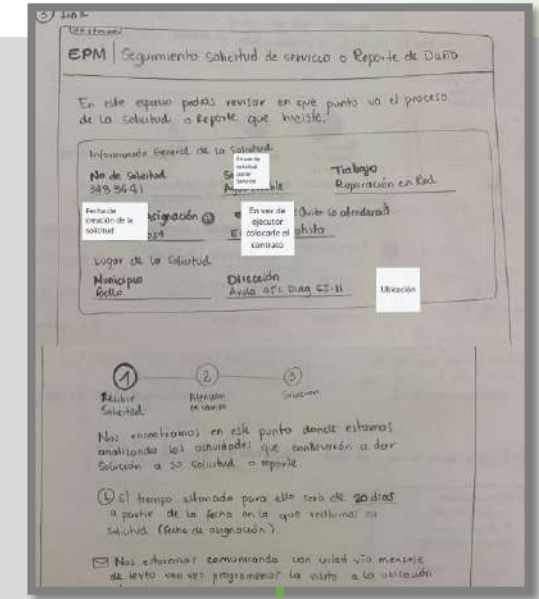 ③ Link
EPM | Seguimiento Solicitud de servicio o Reporte de Daño
En este espacio podrás revisar en qué punto va el proceso
de la solicitud o Reporte que hiciste.
Información General de la Solicitud
No de Solicitud
3493641
En vez de
solicitud
Trabajo
Reparación en Red
Fecha de
creación de la
solicitud
Asignación
En vez de
ejecutor
colocarle el
contrato
Quién lo atenderá?
Lugar de la Solicitud
Municipio
Bello
Dirección
Ubicación
1 2 3
Recibir
Solicitud
Atención
en campo
Solución
Nos encontramos en este punto donde estamos
analizando las actividades que conllevarán a dar
Solución a su solicitud o reporte.
El tiempo estimado para ello será de 20 días
a partir de la fecha en la que recibimos su
solicitud (fecha de asignación)
Nos estaremos comunicando con usted vía mensaje
de texto una vez programemos la visita a la ubicación